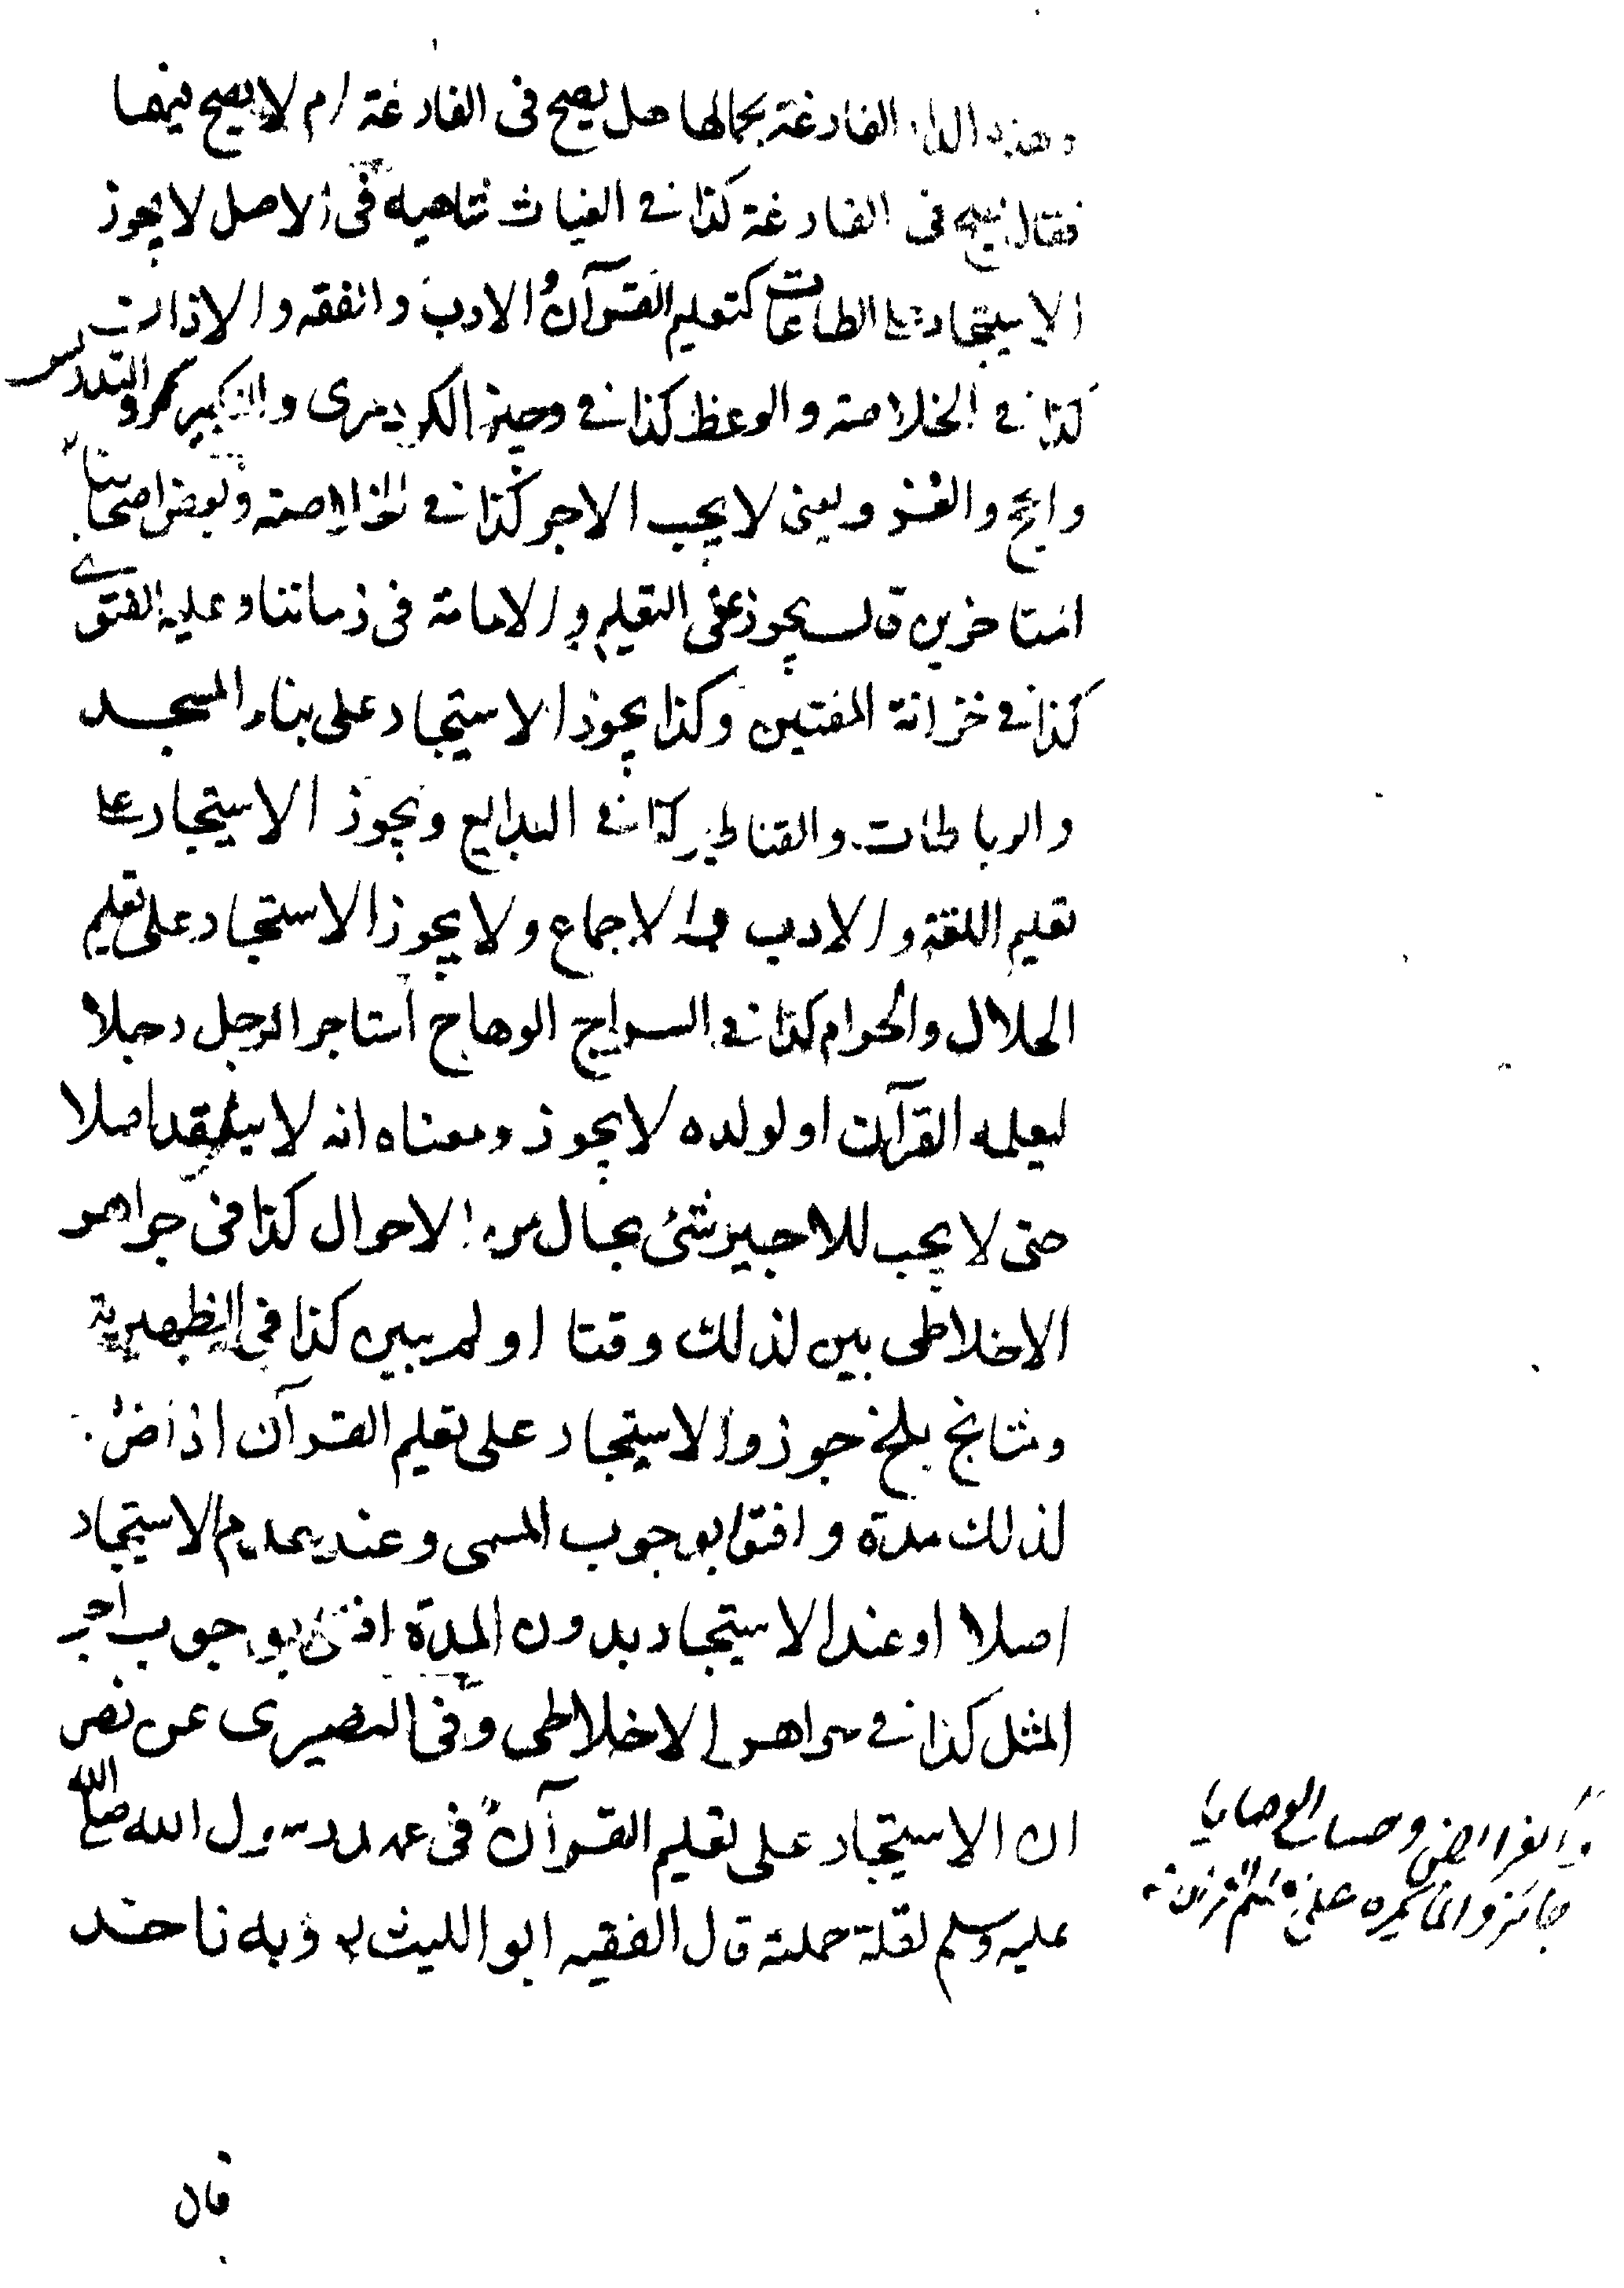 وهذه الدار الفارغة بحالها هل يصح فى الفارغة ام لا يصح فيهما
فقال يصح فى الفارغة كذا فى الغياثية فى الاصل لا يجوز
الاستيجار على الطاعات كتعليم القرآن والادب والفقه والاذان
كذا فى الخلاصة والوعظ كذا فى وجيز الكردرى والتذكير والتدريس
والحج والغزو يعنى لا يجب الاجر كذا فى الخلاصة وبعض اصحابنا
المتاخرين قال يجوز على التعليم والامامة فى زماننا وعليه الفتوى
كذا فى خزانة المفتين وكذا يجوز الاستيجار على بناء المسجد
والرباطات والقناطير كذا فى البدايع ويجوز الاستيجار على
تعليم اللغة والادب بالاجماع ولا يجوز الاستيجار على تعليم
الحلال والحرام كذا فى السراج الوهاج استاجر الرجل رجلا
ليعلمه القرآن او لولده لا يجوز ومعناه انه لا ينعقد اصلا
حتى لا يجب للاجير شئ بحال من الاحوال كذا فى جواهر
الاخلاطى بين لذلك وقتا او لم يبين كذا فى الظهيرية
ومشايخ بلخ جوزوا الاستيجار على تعليم القرآن اذا ضرب
لذلك مدة وافتوا بوجوب المسمى وعند عدم الاستيجار
اصلا او عند الاستيجار بدون المدة افتوا بوجوب اجر
المثل كذا فى جواهر الاخلاطى وفى النصيرى عن نصر
ان الاستيجار على تعليم القرآن فى عهد رسول الله صلى الله
عليه وسلم لقلة حملته قال الفقيه ابو الليث به ناخذ
والفرائض وحساب الوصايا
جائز
قال